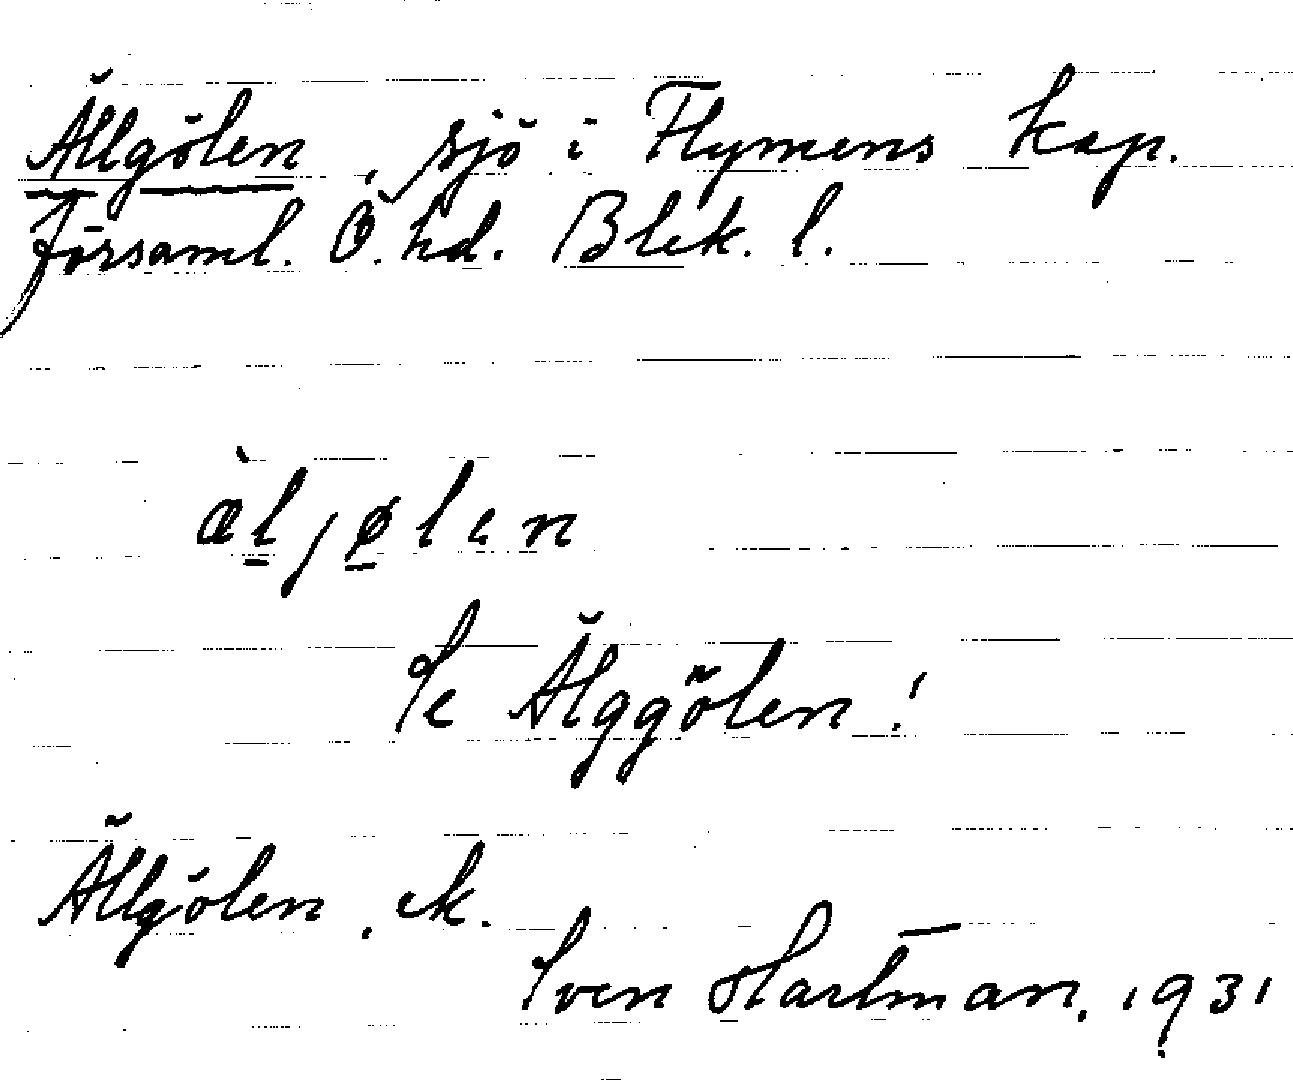 Ällgölen, sjö i Flymens kap.
församl. Ö. hd. Blek. l.
æ̀l̲jø̲len
Se Älggölen!
Ällgölen, ek.
Sven Hartman, 1931